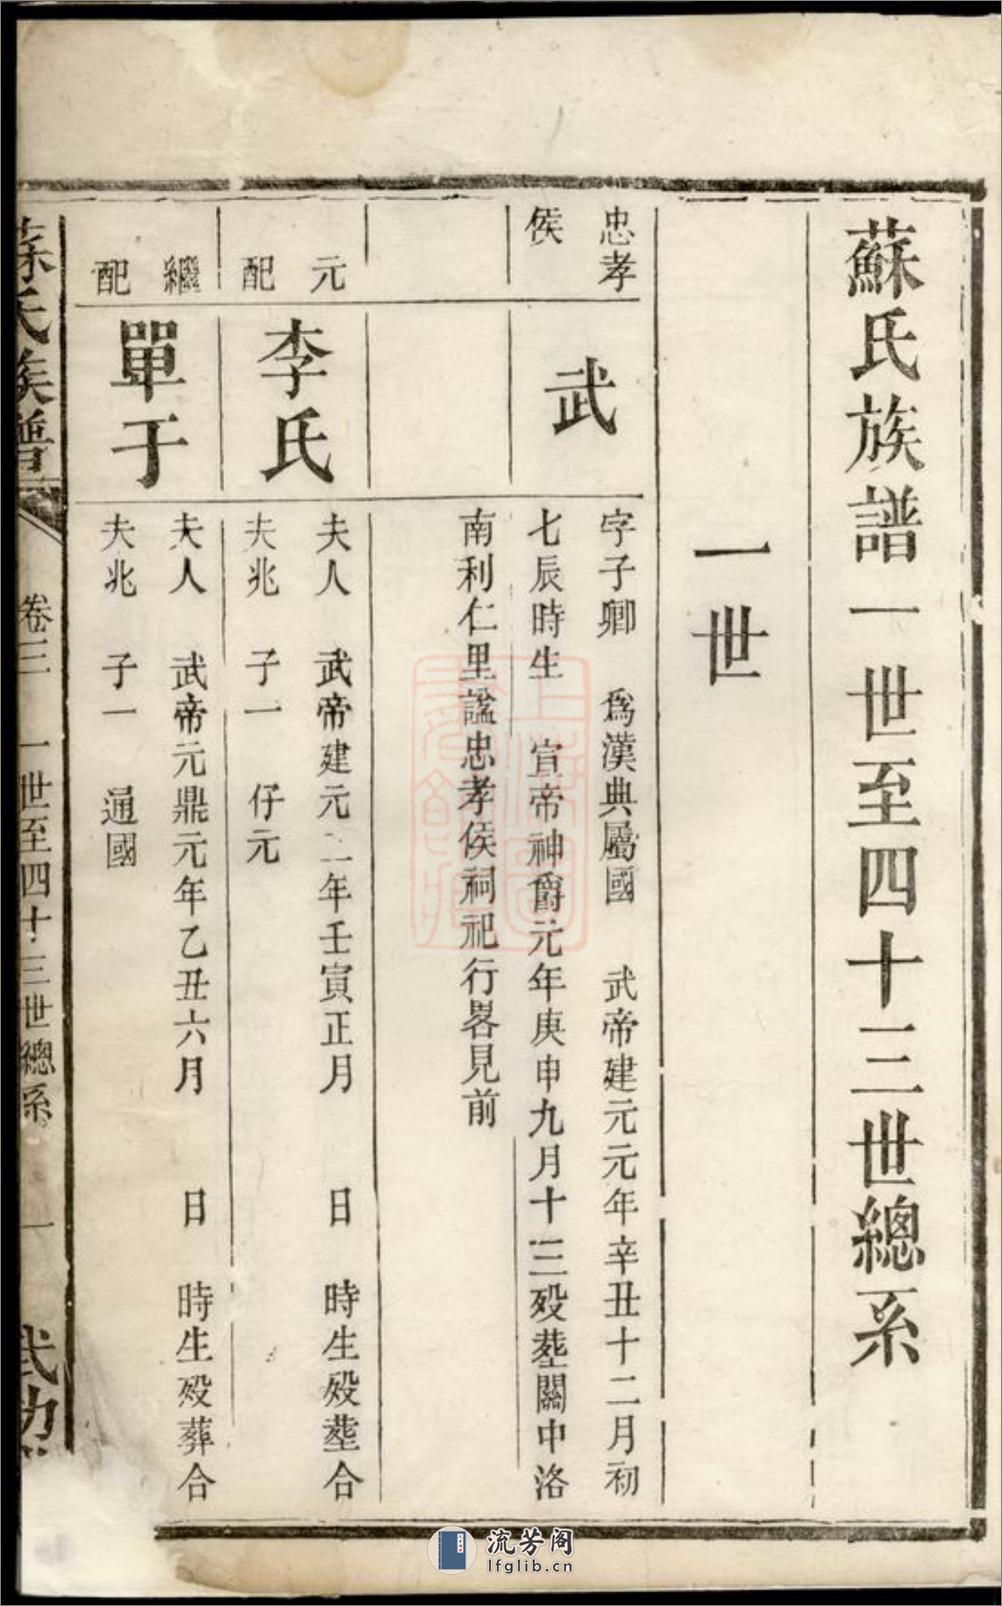 蘇氏族譜一世至四十三世總系
一世
忠孝
侯
武
字子卿 爲漢典屬國 武帝建元元年辛丑十二月初
七辰時生 宣帝神爵元年庚申九月十三歿塟關中洛
南利仁里諡忠孝侯祠祀行畧見前
元
配
李氏
夫人 武帝建元二年壬寅正月 日 時生歿塟合
夫兆 子一 仔元
繼
配
單于
夫人 武帝元鼎元年乙丑六月 日 時生歿葬合
夫兆 子一 通國
蘇氏族譜 卷三 一世至四十三世總系 一 武功
流芳阁
lfglib.cn